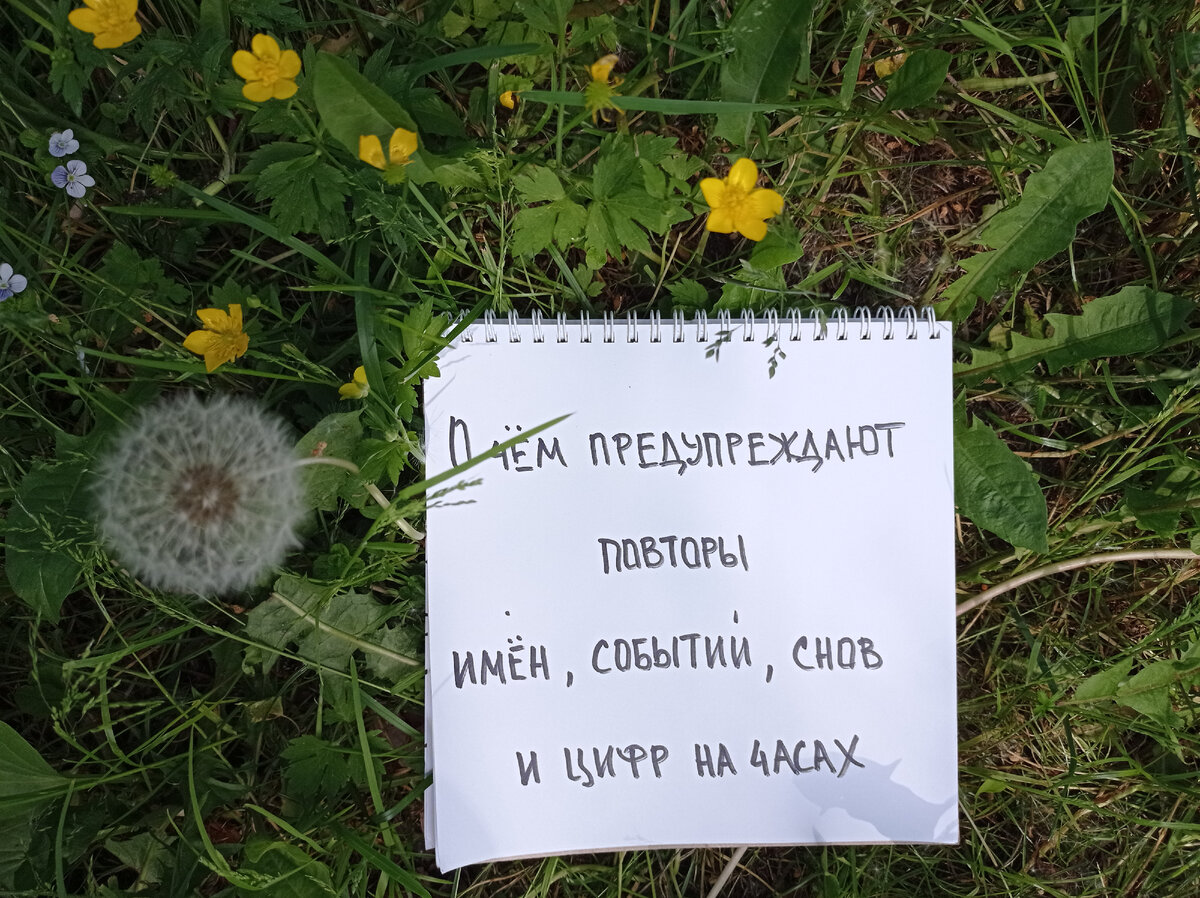 О чём ПРЕДУПРЕЖДАЮТ
ПОВТОРЫ
ИМЁН, СОБЫТИЙ, СНОВ
И ЦИФР НА ЧАСАХ